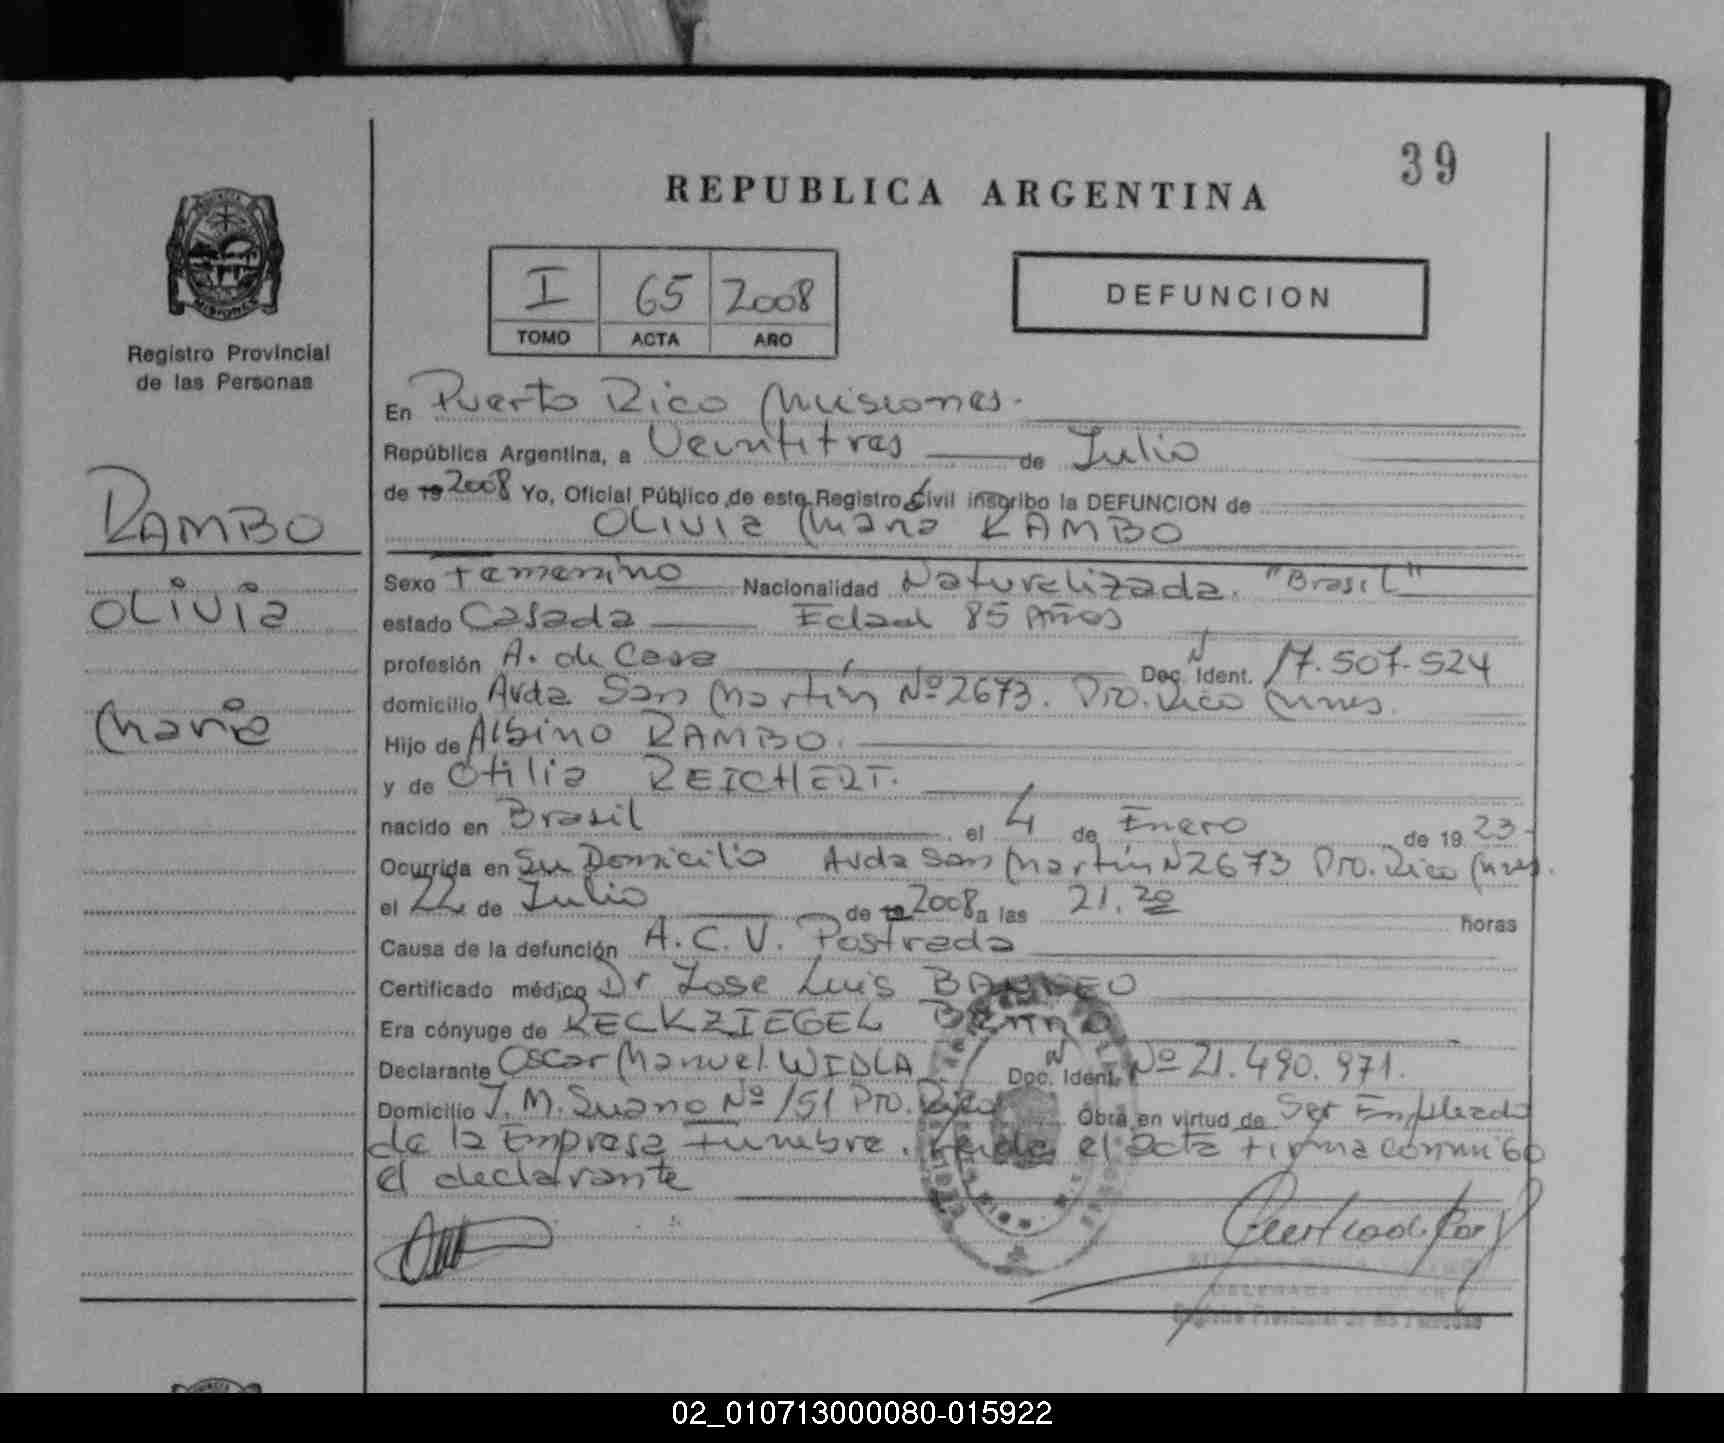 39
REPUBLICA ARGENTINA
I 65 2008
TOMO ACTA AÑO
DEFUNCION
Registro Provincial
de las Personas
RAMBO
OLIVIA
Maria
En Puerto Rico Misiones.
República Argentina, a Veintitres de Julio
de 19 2008 Yo, Oficial Público de este Registro Civil inscribo la DEFUNCION de
OLIVIA Maria RAMBO
Sexo Femenino Nacionalidad Naturalizada. "Brasil"
estado Casada Edad 85 Años
profesión A. de Casa Doc. Ident. 17.507.524
domicilio Avda San Martín Nº 2673. Pto. Rico Mnes.
Hijo de Albino RAMBO.
y de Otilia REICHERT.
nacido en Brasil el 4 de Enero de 19 23
Ocurrida en Su Domicilio Avda San Martín N 2673 Pto. Rico Mnes.
el 22 de Julio de 19 2008 a las 21.20 horas
Causa de la defunción A.C.V. Postrada
Certificado médico Dr Jose Luis
Era cónyuge de RECKZIEGEL Benno
Declarante Oscar Manuel WIDLA Doc. Ident. Nº 21.490.971.
Domicilio J. M. Nº 151 Pto. Rico Obra en virtud de Ser Empleado
de la Empresa Funebre. Leida el acta firma conmigo
el declarante
Registro Provincial de las Personas
02_010713000080-015922